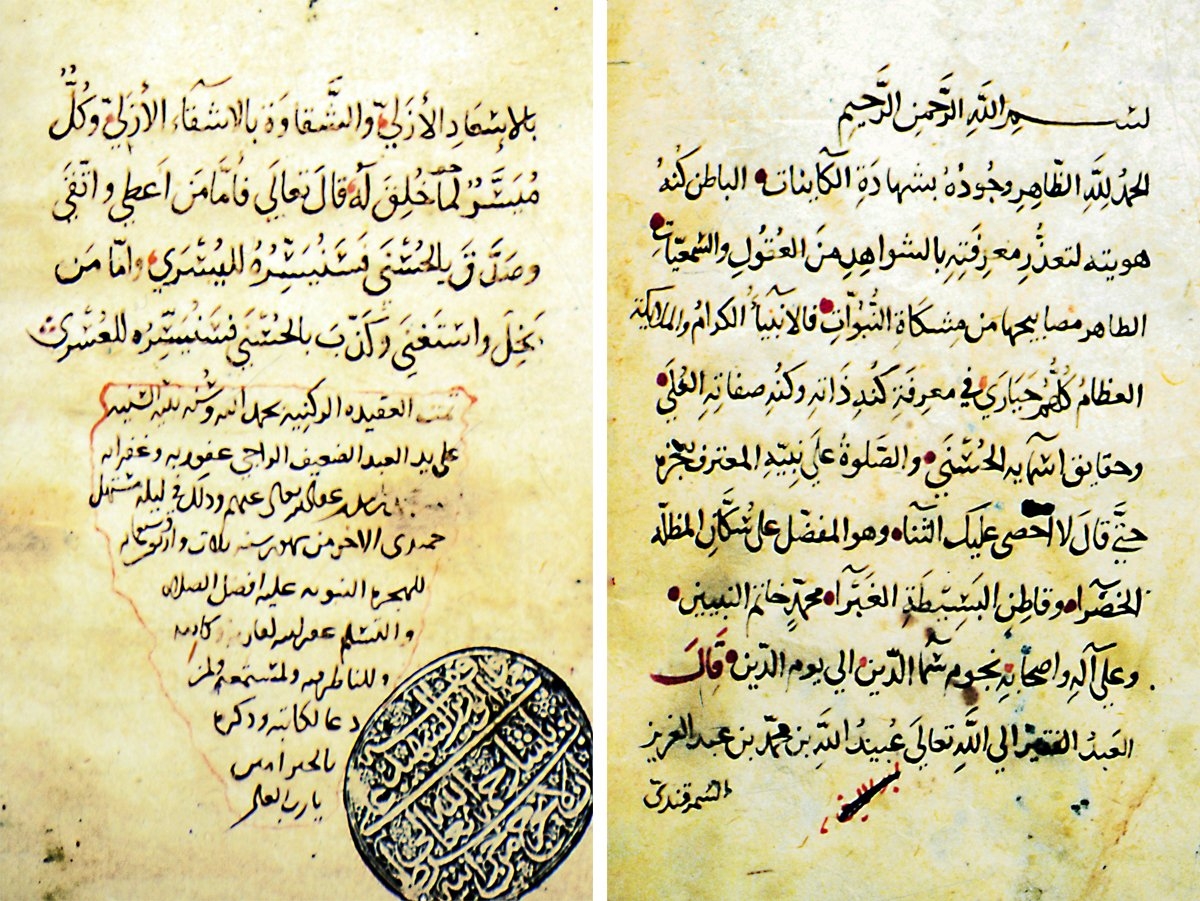 بسم الله الرَّحمن الرَّحيم
الحمدُ لِلَّهِ الظَّاهِرِ وجُودُهُ بشهادَةِ الكاينات الباطن كُنْهُ
هويته لتعذُّرِ معرفَتِهِ بالشواهدِ منَ العُقُولِ والسَّمعيّاتِ
الظاهر مصابيحها من مشكاة النُّبُوّاتِ فالانبيآء الكرامُ والملايكة
العظامُ كُلُّهُم حَيَارَي في معرفَةِ كُنْهِ ذَاتِهِ وكُنْهِ صفاتِهِ العُلَي
وحقايق اسمآيه الحُسْنَي والصَّلوةُ علي نبيّهِ المعترف بعجزه
حتَّي قالَ لا احصي عليك الثَّناء وهو المفضّل علي سُكَّانِ المظلّه
الخضرآء وقاطِنِ البَسِيطَةِ الغَبْرآء محمّدٍ خاتم النبيين
وعلي آلِهِ واصحابِهِ نجوم سمآ الدّين الي يوم الدّين قَالَ
العَبدُ الفقير الي اللَّهِ تعالَي عُبيدُ اللَّهِ بن محمّد بن عبد العزيز
السمرقندي
بالإسعَادِ الأزليّ والشَّقاوَة بالاشقآء الأزليّ وكُلٌّ
مُيَسَّرٌ لما خُلِقَ لَه قالَ تعالَي فامّا مَن اَعطي واتّقَي
وصَدَّقَ بالحُسْنَي فسَنُيَسِّرُهُ لليُسْرَي وامّا مَن
بَخِلَ واستَغنَي وكَذَّبَ بالحُسْنَي فسَنُيَسِّرُه للعُسْرَي
تمت العقيده الركنيه بحمد الله
علي يد العبد الضعيف الراجي عفو ربه وغفرانه
عفا الله تعالي عنهم وذلك في ليلة مستهل
جمدي الاخر من شهور سنه ثلاث واربعمايه
للهجره النبويه عليه افضل الصلاه
والتسليم غفر الله لقاريه وكاتبه
وللناظر فيه ولمستمعه ولمن
دعا لكاتبه وذكره
بالخير امين
يا رب العالمين